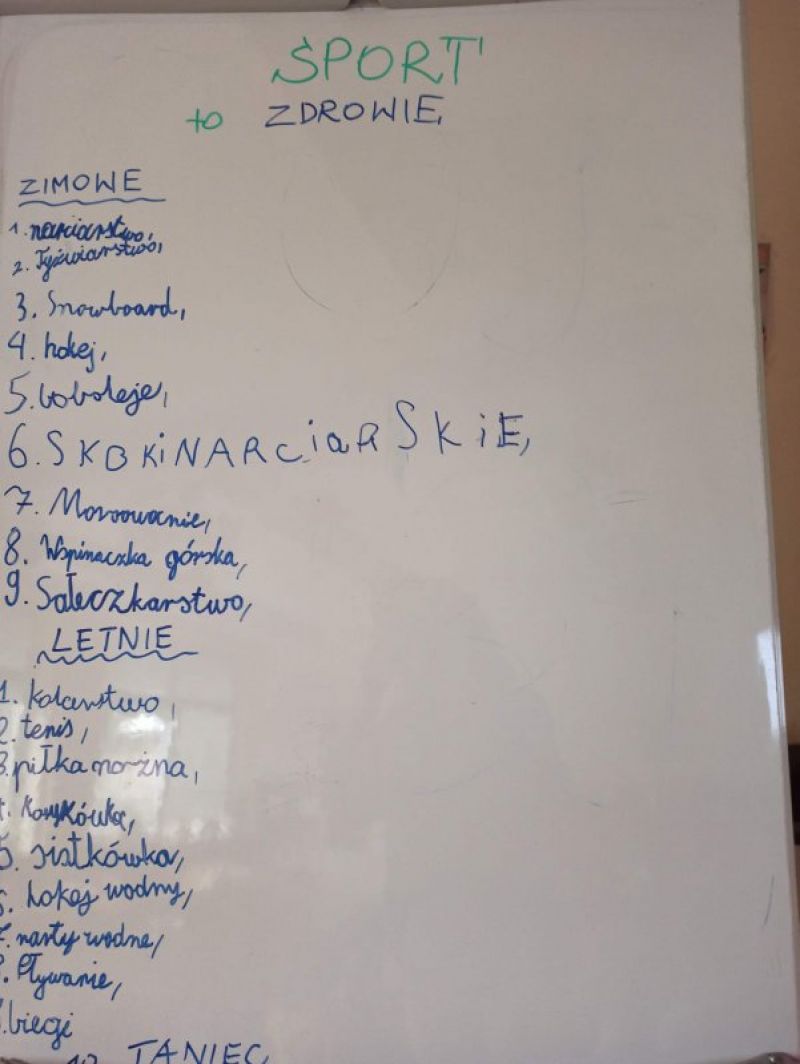 SPORT
to ZDROWIE,
ZIMOWE
1. narciarstwo,
2. Tyżwiarstwo,
3. Snowboard,
4. hokej,
5. boboleje,
6. SKOKiNARCiaRSKiE,
7. Morsowanie,
8. Wspinaczka górska,
9. Saleczkarstwo,
LETNIE
1. kolarstwo,
2. tenis,
3. piłka nożna,
4. Koszykówka,
5. siatkówka,
6. hokej wodny,
7. narty wodne,
8. Pływanie,
9. biegi
10. TANIEC